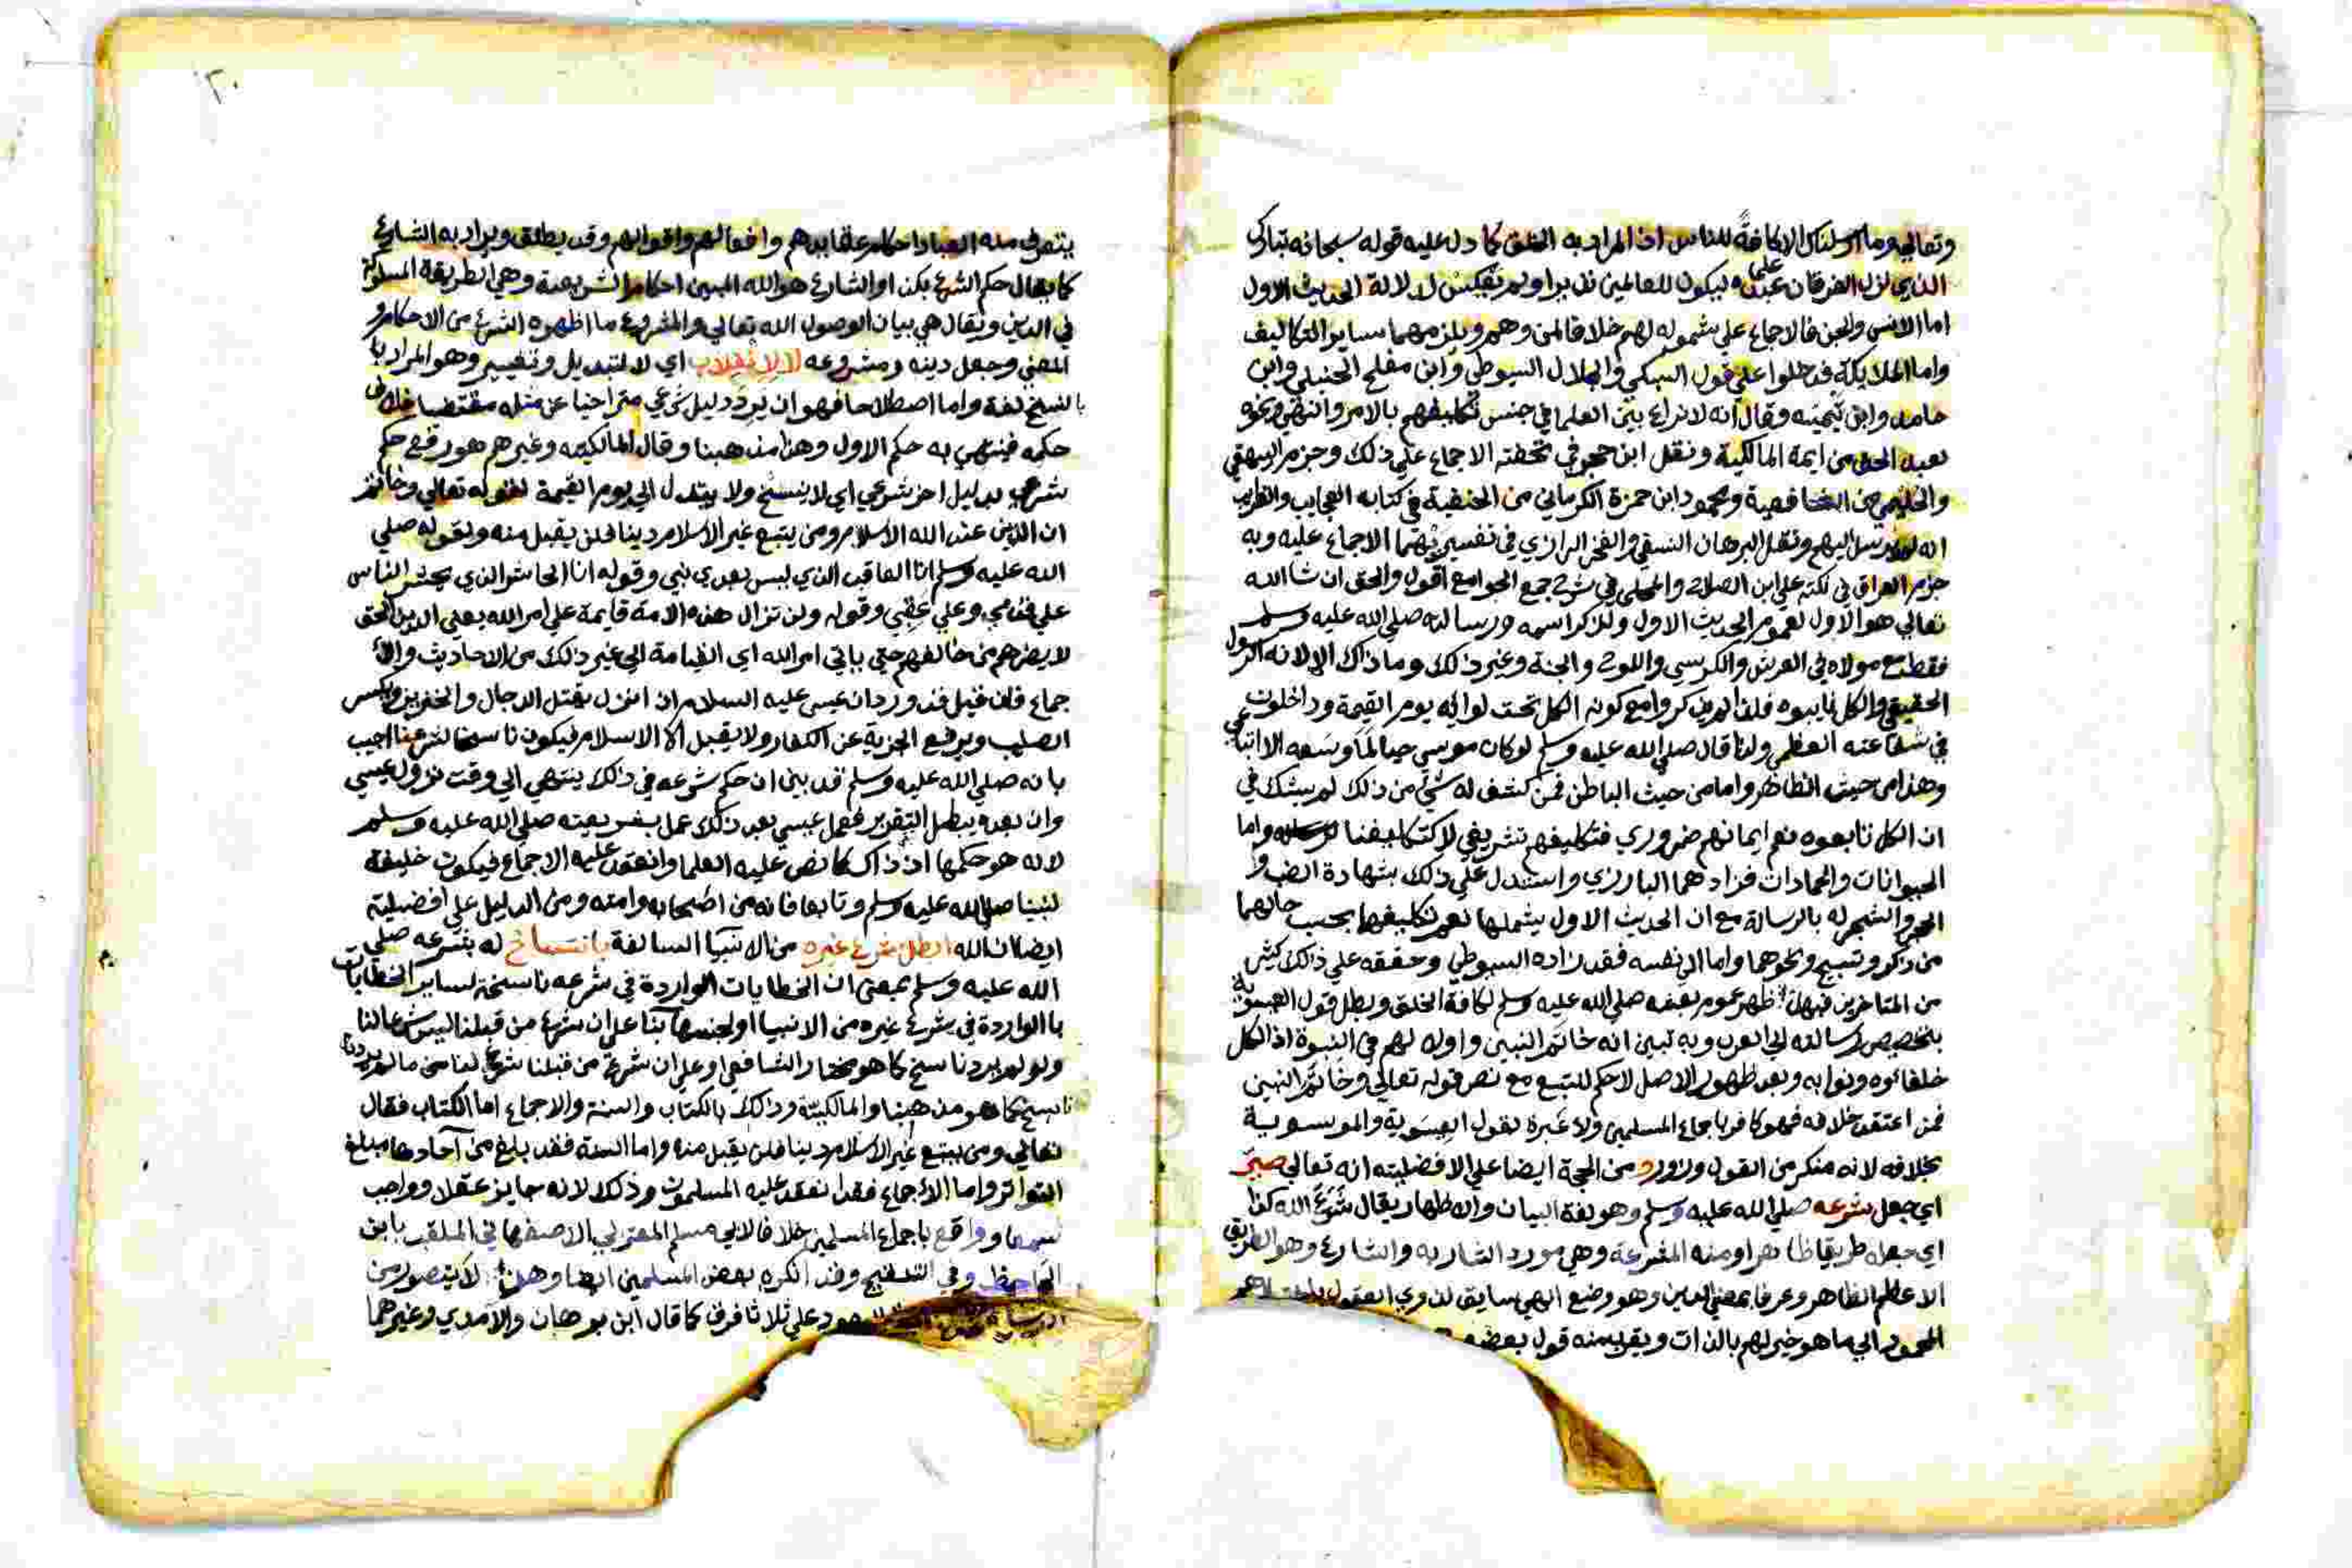 وتعالى وما ارسلناك الا كافة للناس اذ المراد به الخلق كما دل عليه قوله سبحانه تبارك
الذي نزل الفرقان على عبده ليكون للعالمين نذيرا ولم يعكس لدلالة الحديث الاول
اما الانس والجن فالاجماع على شموله لهم خلافا لمن وهم ويلزمهما ساير التكاليف
واما الملايكة فدخلوا على قول السبكي والجلال السيوطي وابن مفلح الحنبلي وابن
حامد وابن تيمية وقال انه لا نزاع بين العلما في جنس تكليفهم بالامر والنهي ونحو
لعبد الحق من ايمة المالكية ونقل ابن حجر في تحفته الاجماع على ذلك وجزم البيهقي
والحليمي من الشافعية ومحمود ابن حمزة الكرماني من الحنفية في كتابه العجايب والغرايب
انه لم يرسل اليهم ونقل البرهان النسفي والفخر الرازي في تفسيريهما الاجماع عليه وبه
جزم العراقي في نكته على ابن الصلاح والمحلي في شرح جمع الجوامع اقول والحق ان شا الله
تعالى هو الاول لعموم الحديث الاول ولذكر اسمه ورسالته صلى الله عليه وسلم
فقط مع مولاه في العرش والكرسي واللوح والجنة وغير ذلك وما ذاك الا لانه الرسول
الحقيقي والكل نايبوه فلذا لم يذكروا مع كونه الكل تحت لوايه يوم القيمة وداخلون
في شفاعته العظمى ولذا قال صلى الله عليه وسلم لو كان موسى حيا لما وسعه الا اتباعي
وهذا من حيث الظاهر واما من حيث الباطن فمن كشف له شي من ذلك لم يشك في
ان الكل تابعوه نعم ايمانهم ضروري فتكليفهم تشريفي لا كتكليفنا واما
الحيوانات والجمادات فزادهما البارزي واستدل على ذلك بشهادة الضب و
الحجر والشجر له بالرسالة مع ان الحديث الاول يشملها نعم تكليفهما بحسب حالهما
من ذكر وتسبيح ونحوهما واما الى نفسه فقد زاده السيوطي وحققه على ذلك كثير
من المتاخرين فبهذا ظهر عموم بعثه صلى الله عليه وسلم لكافة الخلق وبطل قول العيسوية
بتخصيص رسالته الى العرب وبه تبين انه خاتم النبيين واولهم في النبوة اذ الكل
خلفاؤه ونوابه وبعد ظهور الاصل لا حكم للتبع مع نص قوله تعالى وخاتم النبين
فمن اعتقد خلافه فهو كافر باجماع المسلمين ولا عبرة بقول العيسوية والموسوية
بخلافه لانه منكر من القول وزور و من الحجة ايضا على الافضلية انه تعالى صير
اي جعل شرعه صلى الله عليه وسلم وهو لغة البيان والاظهار يقال شرع الله كذا
اي جعله طريقا ظاهرا ومنه المشرعة وهي مورد الشاربه والشارع وهو الطريق
الاعظم الظاهر وعرفا بمعنى الدين وهو وضع الهي سايق لذوي العقول باختيارهم
المحمود الى ما هو خير لهم بالذات ويقرب منه قول بعضهم
يتعرف منه العباد احكام عقايدهم وافعالهم واقوالهم وقد يطلق ويراد به الشارع
كما يقال حكم الشرع بكذا والشارع هو الله المبين احكام الشريعة وهي الطريقة المسلوكة
في الدين ويقال هي بيان الوصول الله تعالى والمشروع ما اظهره الشرع من الاحكام و
المعنى وجعل دينه ومشروعه لا لانقلاب اي لا لتبديل وتغيير وهو المراد با
بالنسخ لغة واما اصطلاحا فهو ان يرد دليل شرعي متراخيا عن مثله مقتضيا خلاف
حكمه فينتهي به حكم الاول وهذا مذهبنا وقال المالكيه وغيرهم هو رفع حكم
شرعي بدليل اخر شرعي اي لا ينسخ ولا يبتدل الى يوم القيمة لقوله تعالى وخاتم
ان الدين عند الله الاسلام ومن يبتع غير الاسلام دينا فلن يقبل منه ولقوله صلى
الله عليه وسلم انا العاقب الذي ليس بعدي نبي وقوله انا الحاشر الذي يحشر الناس
على قدمي وعلى عقبي وقوله ولن تزال هذه الامة قايمة على امر الله يعني الدين الحق
لا يضرهم من خالفهم حتى ياتي امر الله اي القيامة الى غير ذلك من الاحاديث والا
جماع فان قيل قد ورد ان عيسى عليه السلام اذا نزل يقتل الدجال والخنزير ويكسر
الصليب ويرفع الجزية عن الكفار ولا يقبل الا الاسلام فيكون ناسخا لشرعنا اجيب
بانه صلى الله عليه وسلم قد بين ان حكم شرعه في ذلك ينتهي الى وقت نزول عيسى
وان بعده يبطل التقرير فعمل عيسى بعد ذلك عمل بشريعته صلى الله عليه وسلم
لانه هو حكمها اذ ذاك كما نص عليه العلما وانعقد عليه الاجماع فيكون خليفة
لنبينا صلى الله عليه وسلم وتابعا فانه من اصحابه وامته ومن الدليل على افضليته
ايضا ان الله ابطل شرع غيره من الانبيا السالفة بانتساخ له بشرعه صلى
الله عليه وسلم بمعنى ان الخطابات الواردة في شرعه ناسخة لساير الخطابات
با الواردة في شرع غيره من الانبيا او لجنسها بنا على ان شرع من قبلنا ليس شرعا لنا
ولو لم يرد ناسخ كما هو مختار الشافعي او على ان شرع من قبلنا شرع لنا من ما لم يرد
ناسخ كما هو مذهبنا والمالكية وذلك بالكتاب والسنة والاجماع اما الكتاب فقال
تعالى ومن يبتع غير الاسلام دينا فلن يقبل منه واما السنة فقد بلغ من آحادها مبلغ
التواتر واما الاجماع فقد انعقد عليه المسلمون وذلك لانه جايز عقلا وواجب
سمعا وواقع باجماع المسلمين خلافا لابي مسلم المعتزلي الاصفهاني الملقب بابن
الجاحظ وفي التنقيح وقد انكره بعض المسلمين ايضا وهذا لا يتصور من
اليهود على ثلاثا فرق كما قال ابن برهان والآمدي وغيرهما